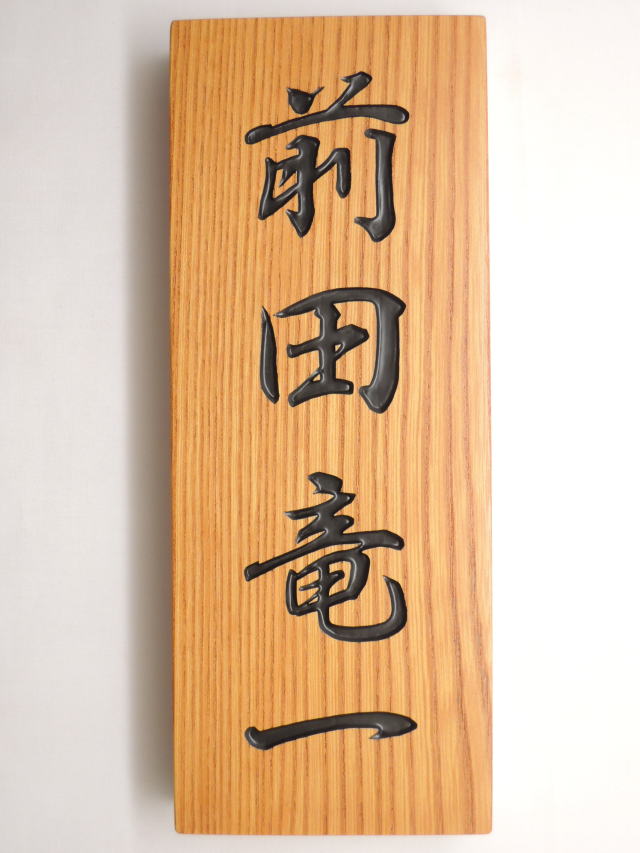 前田竜一